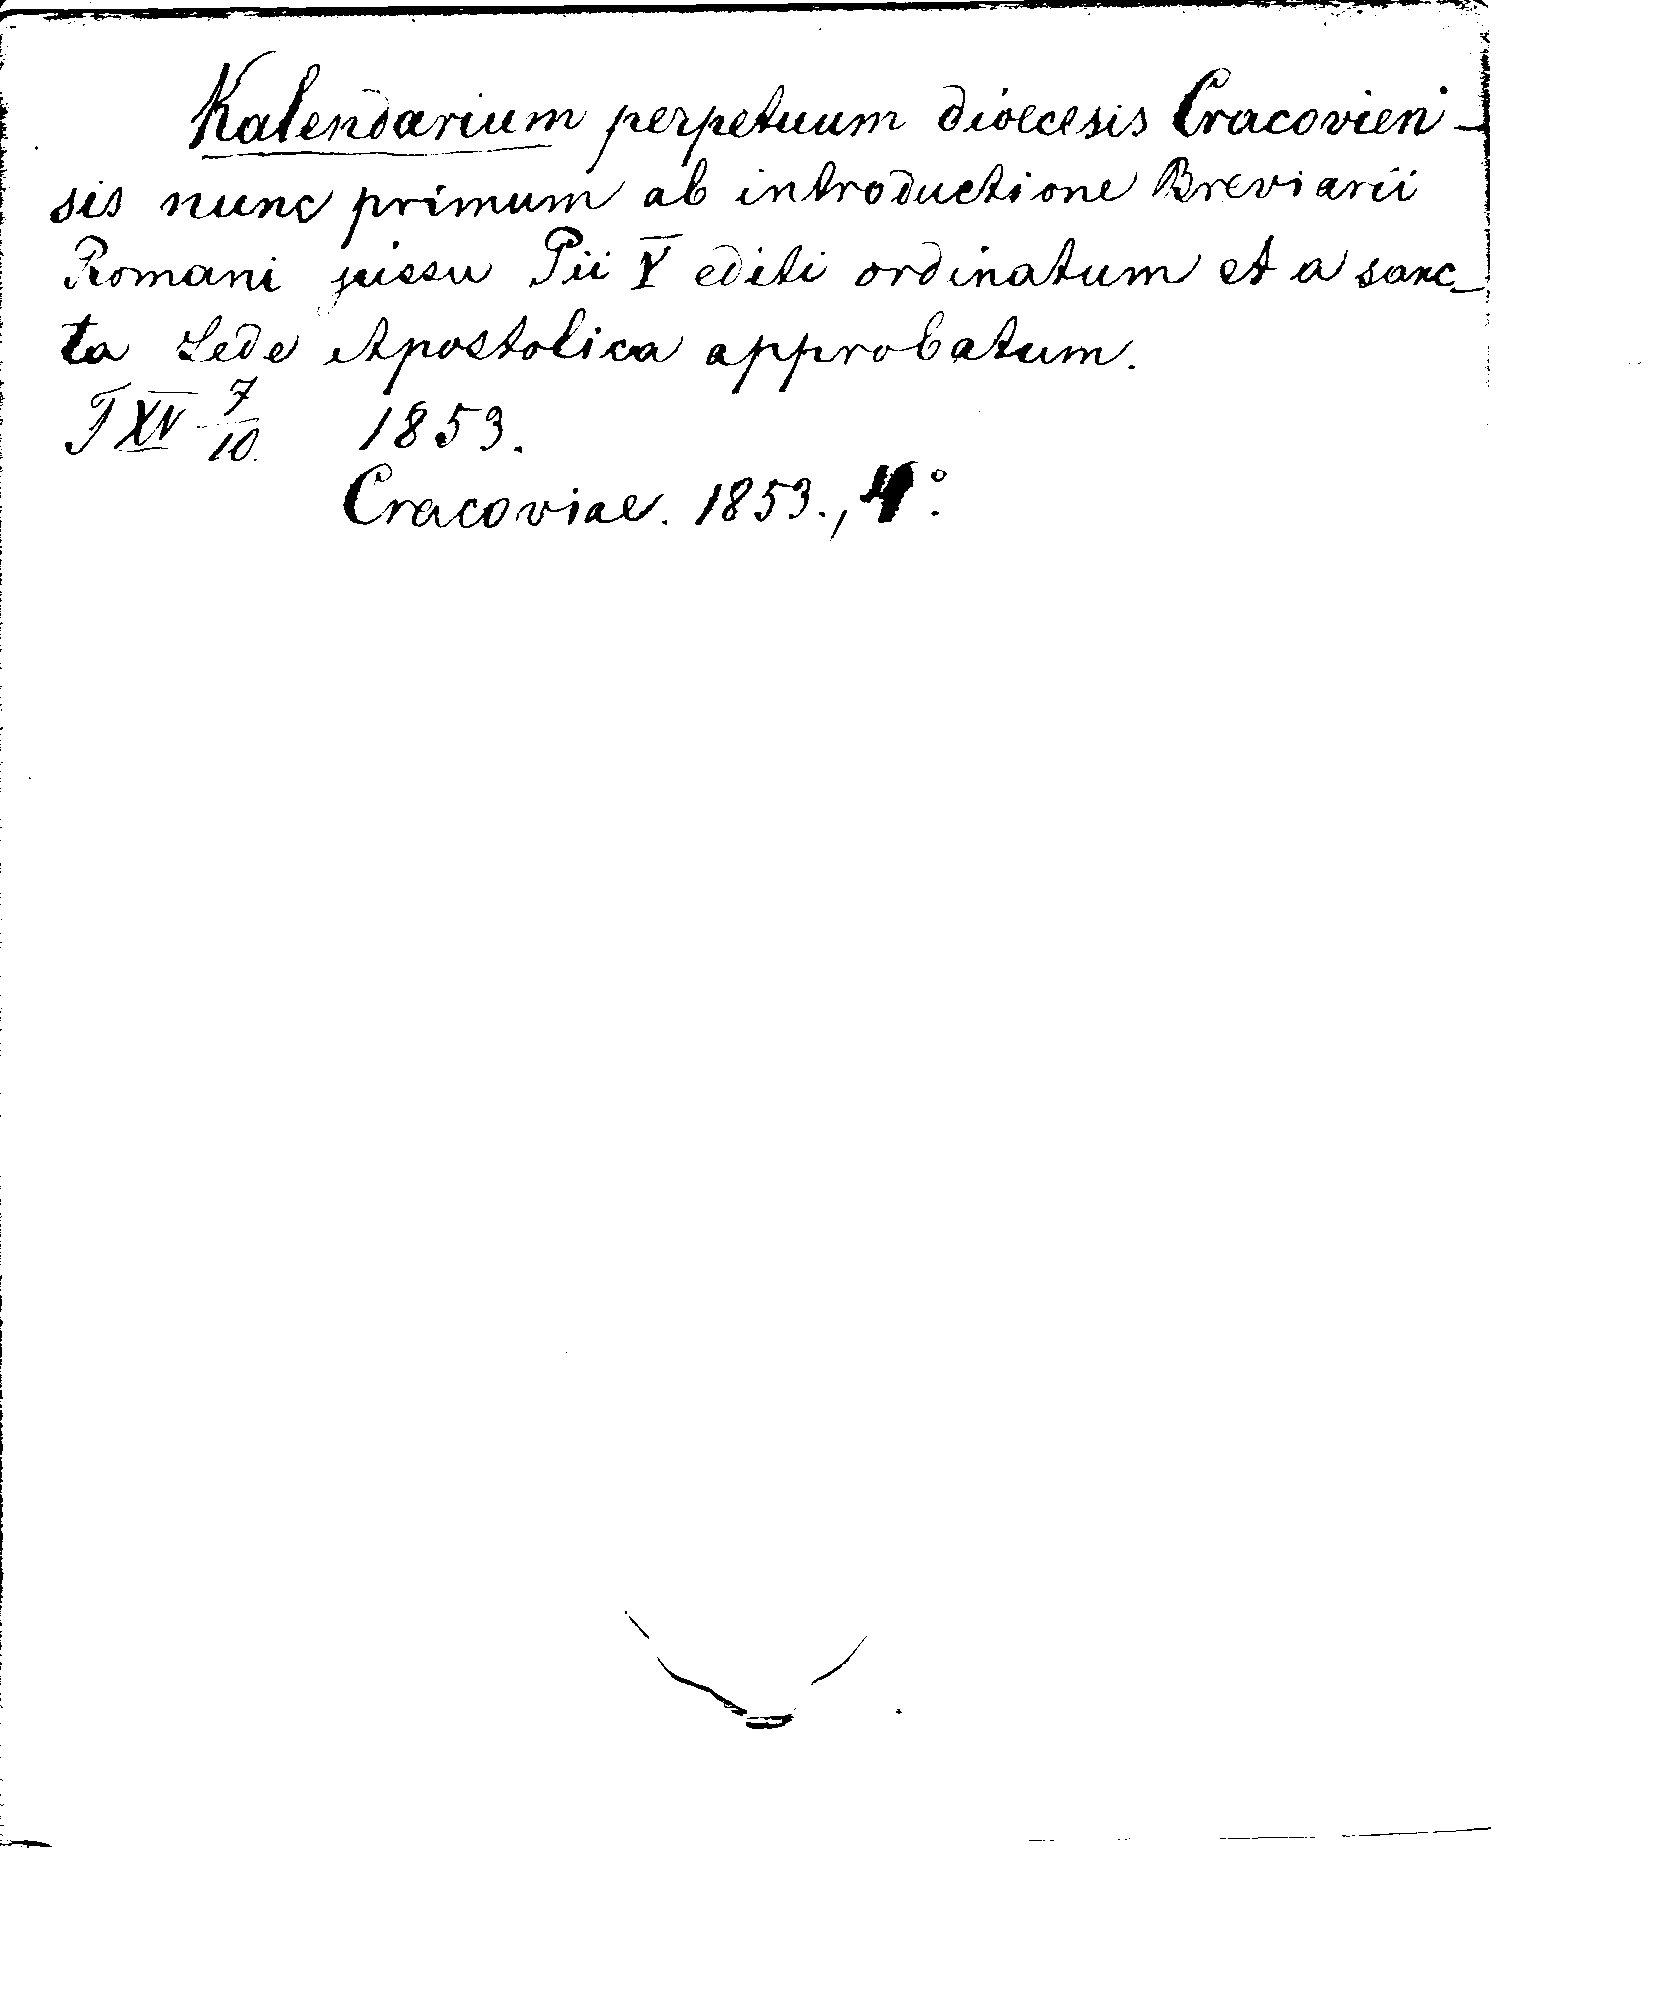 Kalendarium perpetuum dioecesis Cracovien-
sis nunc primum ab introductione Breviarii
Romani jussu Pii V editi ordinatum et a sanc-
ta Sede Apostolica approbatum.
T XV 7/10. 1853.
Cracoviae. 1853., 4°.